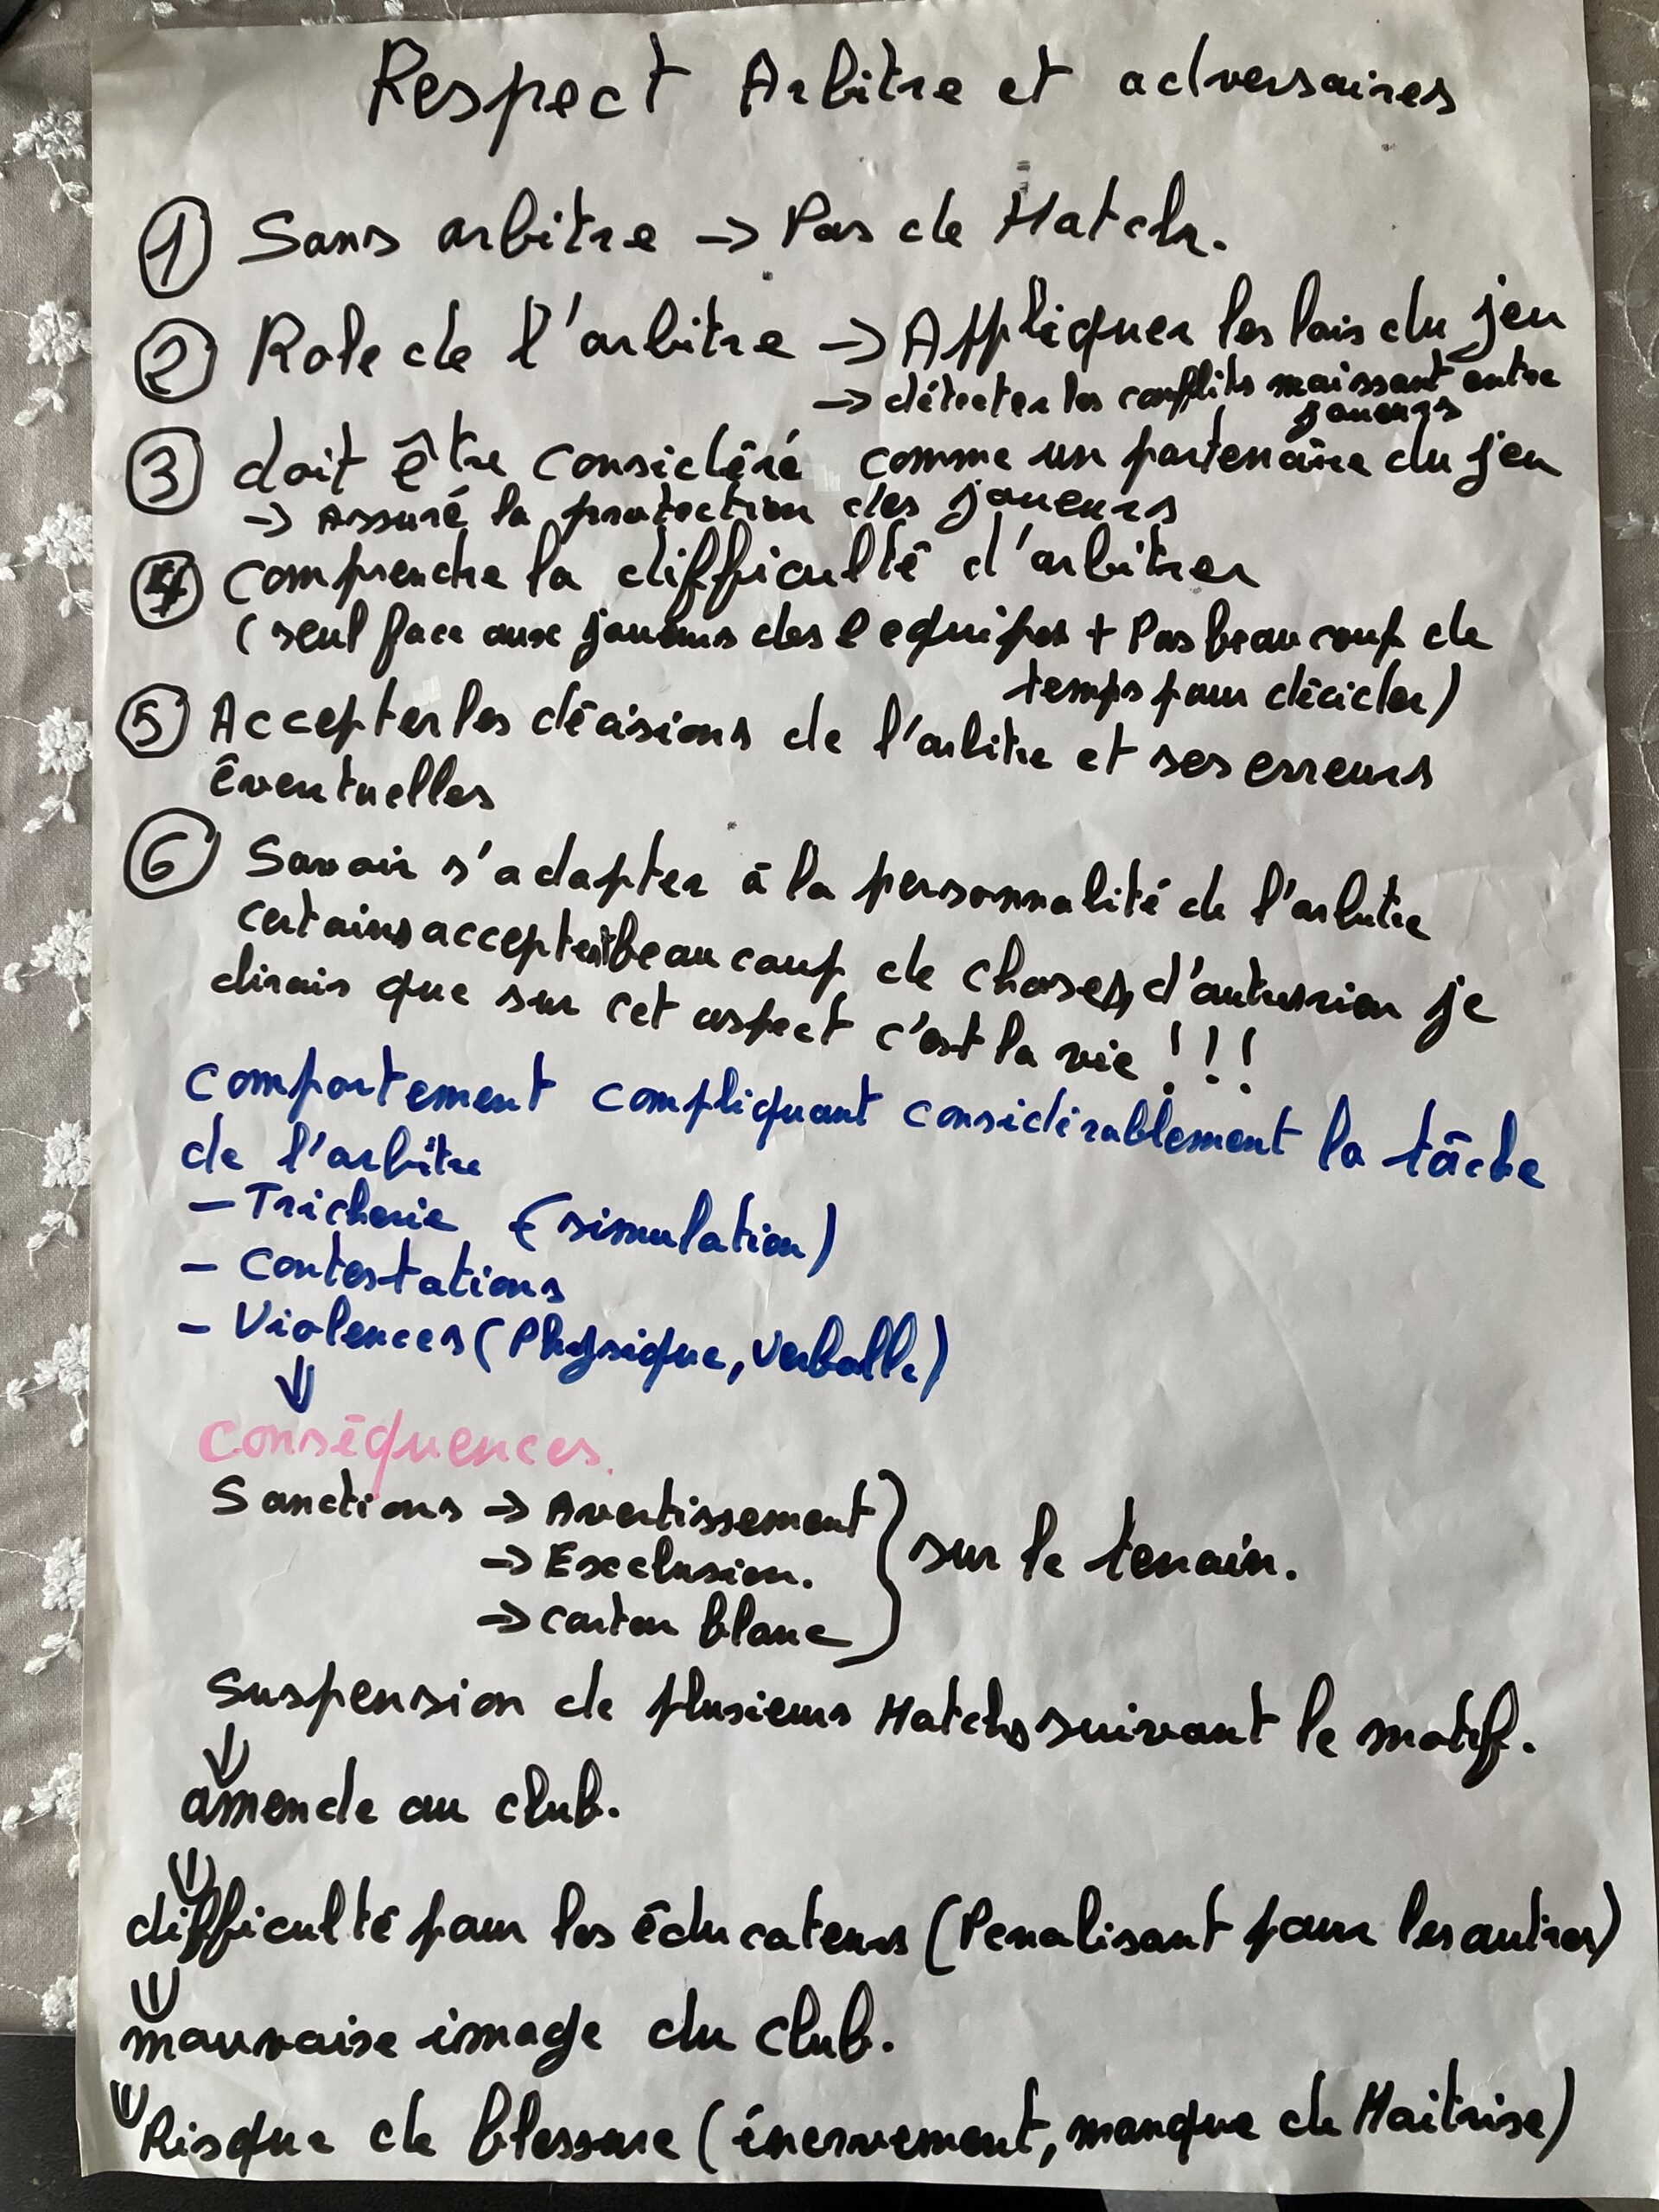 Respect Arbitre et adversaires
① Sans arbitre → Pas de Match.
② Role de l'arbitre → Appliquer les lois du jeu
→ détecter les conflits naissant entre
joueurs
③ doit être considéré comme un partenaire du jeu
→ Assuré la protection des joueurs
④ comprendre la difficulté d'arbitrer
(seul face aux joueurs des 2 equipes + Pas beaucoup de
temps pour décider)
⑤ Accepter les décisions de l'arbitre et ses erreurs
éventuelles
⑥ Savoir s'adapter à la personnalité de l'arbitre
certains acceptent beaucoup de choses, d'autres rien je
dirais que sur cet aspect c'est la vie !!!
comportement compliquant considérablement la tâche
de l'arbitre
- Tricherie (simulation)
- Contestations
- Violences (Physique, verballe)
↓
Conséquences.
Sanctions → Avertissement
→ Exclusion. } sur le terrain.
→ carton blanc
Suspension de plusieurs Matchs suivant le motif.
↓
amende au club.
↓
difficulté pour les éducateurs (Penalisant pour les autres)
↓
mauvaise image du club.
↓
Risque de blessure (énervement, manque de Maitrise)